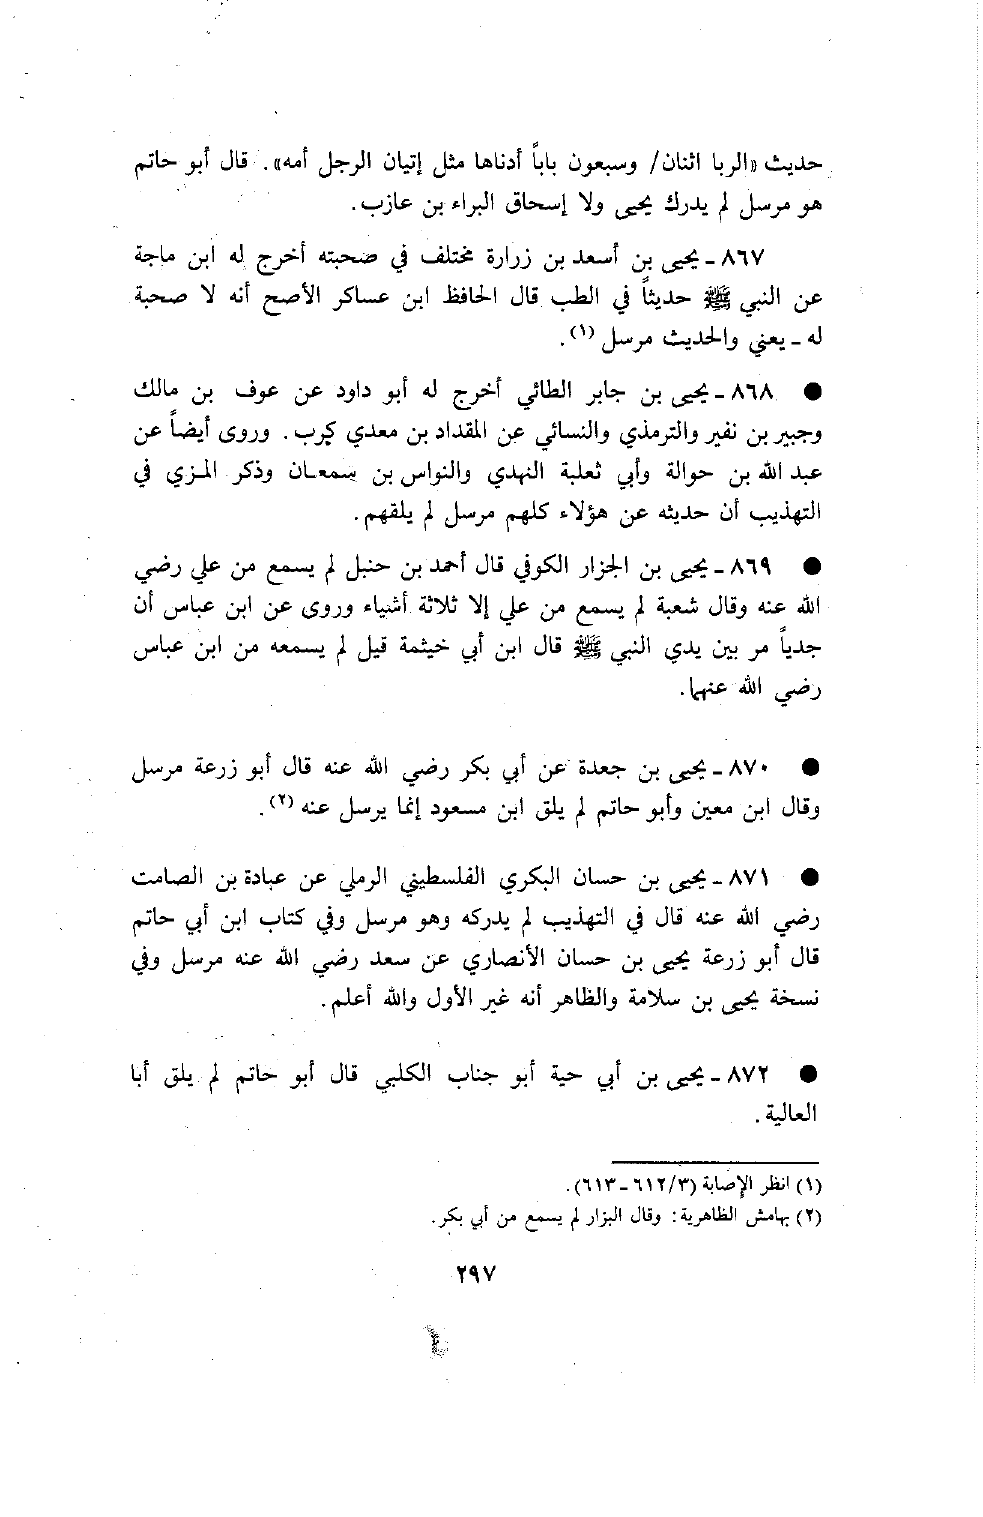 حديث «الربا اثنان/ وسبعون باباً أدناها مثل إتيان الرجل أمه». قال أبو حاتم
هو مرسل لم يدرك يحيى ولا إسحاق البراء بن عازب.
٨٦٧ ـ يحيى بن أسعد بن زرارة مختلف في صحبته أخرج له ابن ماجة
عن النبي ﷺ حديثاً في الطب قال الحافظ ابن عساكر الأصح أنه لا صحبة
له ـ يعني والحديث مرسل (١).
● ٨٦٨ ـ يحيى بن جابر الطائي أخرج له أبو داود عن عوف بن مالك
وجبير بن نفير والترمذي والنسائي عن المقداد بن معدي كرب. وروى أيضاً عن
عبد الله بن حوالة وأبي ثعلبة النهدي والنواس بن سمعان وذكر المزي في
التهذيب أن حديثه عن هؤلاء كلهم مرسل لم يلقهم.
● ٨٦٩ ـ يحيى بن الجزار الكوفي قال أحمد بن حنبل لم يسمع من علي رضي
الله عنه وقال شعبة لم يسمع من علي إلا ثلاثة أشياء وروى عن ابن عباس أن
جدياً مر بين يدي النبي ﷺ قال ابن أبي خيثمة قيل لم يسمعه من ابن عباس
رضي الله عنهما.
● ٨٧٠ ـ يحيى بن جعدة عن أبي بكر رضي الله عنه قال أبو زرعة مرسل
وقال ابن معين وأبو حاتم لم يلق ابن مسعود إنما يرسل عنه (٢).
● ٨٧١ ـ يحيى بن حسان البكري الفلسطيني الرملي عن عبادة بن الصامت
رضي الله عنه قال في التهذيب لم يدركه وهو مرسل وفي كتاب ابن أبي حاتم
قال أبو زرعة يحيى بن حسان الأنصاري عن سعد رضي الله عنه مرسل وفي
نسخة يحيى بن سلامة والظاهر أنه غير الأول والله أعلم.
● ٨٧٢ ـ يحيى بن أبي حية أبو جناب الكلبي قال أبو حاتم لم يلق أبا
العالية.
(١) انظر الإصابة (٦١٢/٣ ـ ٦١٣).
(٢) بهامش الظاهرية: وقال البزار لم يسمع من أبي بكر.
٢٩٧